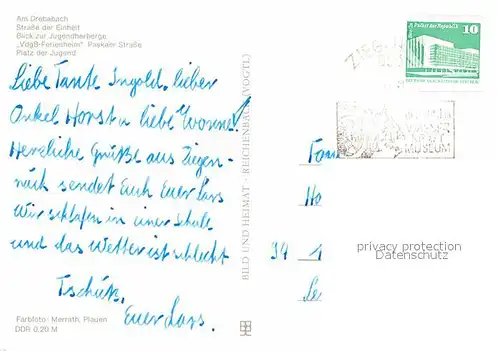 Am Drebabach
Straße der Einheit
Blick zur Jugendherberge
„VdgB-Ferienheim" Paskaer Straße
Platz der Jugend
Liebe Tante Ingold, lieber
Onkel Horst u liebe Yvonne!
Herzliche Grüße aus Ziegen-
rück sendet Euch Euer Lars
Wir schlafen in einer Schule
und das Wetter ist schlecht
Tschüß,
Euer Lars.
Farbfoto: Merrath, Plauen
DDR 0,20 M
BILD UND HEIMAT · REICHENBACH (VOGTL)
Palast der Republik
10
ZIEG
MUSEUM
Ho
94 1
privacy protection
Datenschutz